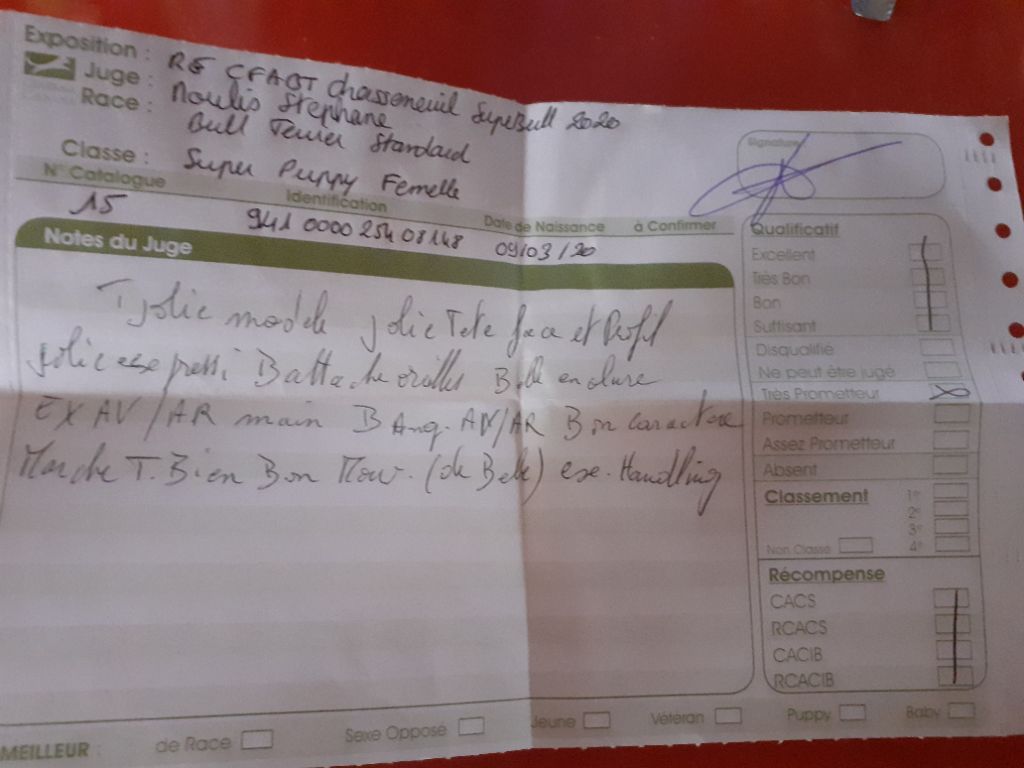 Exposition : RE CFABT Chasseneuil SuperBull 2020
Juge : Moulis Stephane
Race : Bull Terrier Standard
Classe : Super Puppy Femelle
N° Catalogue Identification Date de Naissance à Confirmer
15 941 0000 254 08148 09/03/20
Signature
Notes du Juge
T jolie modele jolie Tete face et Profil
jolie expressi B attache oreilles Belle enclure
EX AV/AR main B Ang. AV/AR Bon caractere
Marche T. Bien Bon Mouv. (de Belle) exe. Handling
Qualificatif
Excellent
Très Bon
Bon
Suffisant
Disqualifié
Ne peut être jugé
Très Prometteur
Prometteur
Assez Prometteur
Absent
Classement 1er
2e
3e
Non Classé 4e
Récompense
CACS
RCACS
CACIB
RCACIB
MEILLEUR : de Race Sexe Opposé Jeune Vétéran Puppy Baby